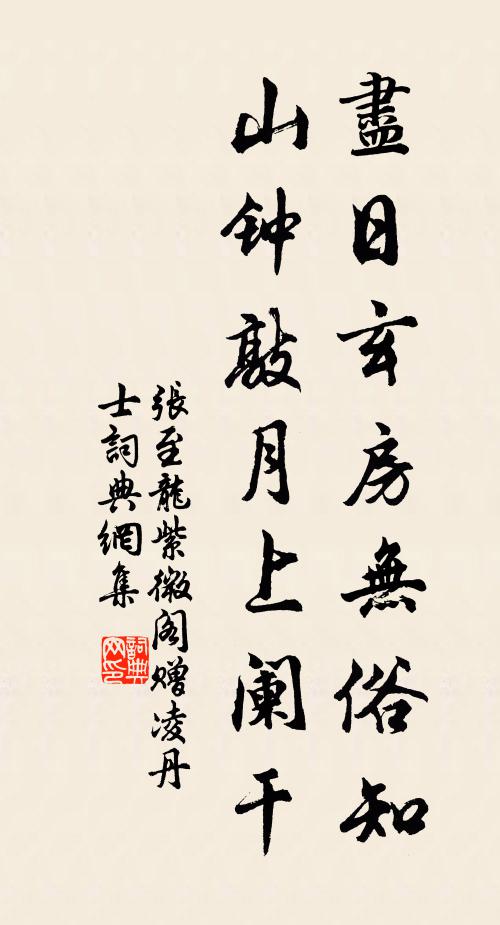 盡日玄房無俗知
山钟敲月上阑干
張至龍紫微阁赠凌丹
士詞典網集
詞典
网印